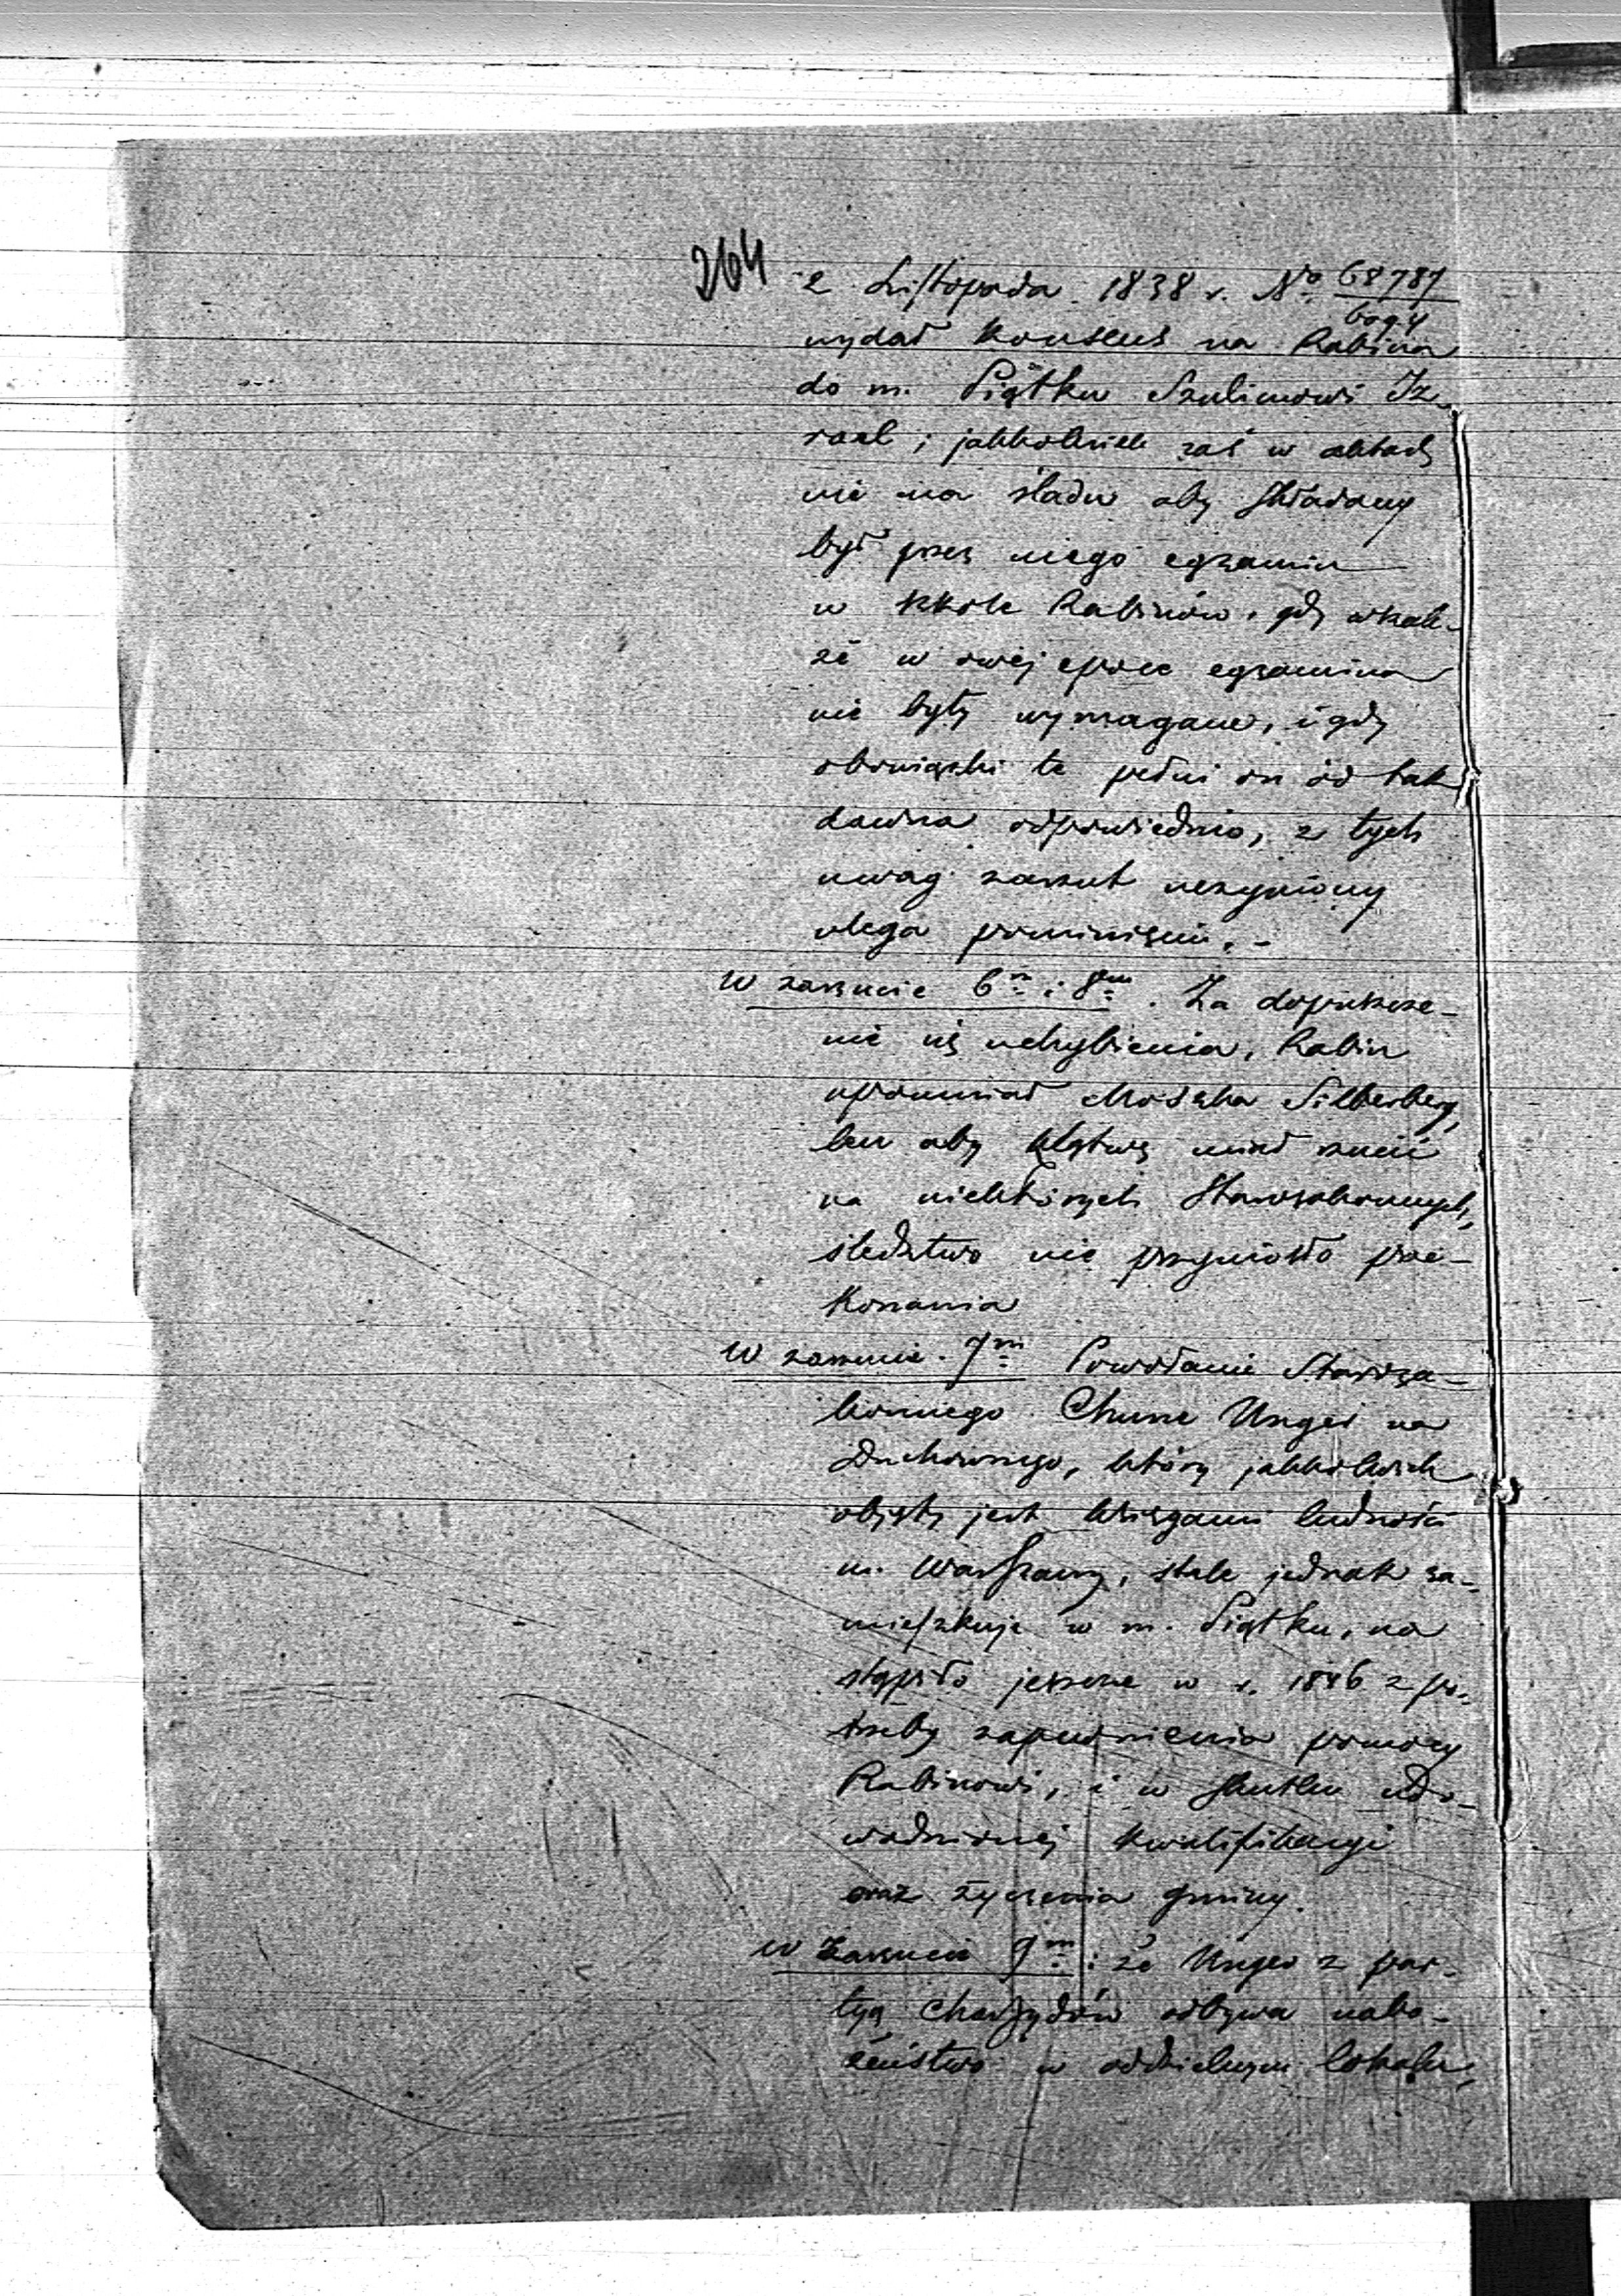 264
2 Listopada 1838 r. No 68787/6094
wydał Konsens na Rabina
do m. Piątku Szulimowi Iz-
rael; jakkolwiek zaś w aktach
nie ma śladu aby składany
był przez niego egzamin
w szkole Rabinów, gdy wszak-
że w owej epoce egzamina
nie były wymagane, i gdy
obowiązki te pełni on od tak
dawna odpowiednio, z tych
uwag zarzut uczyniony
ulega pominięciu. -
W zarzucie 6m i 8m. Za dopuszcze-
nie się uchybienia, Rabin
upomniał Moszka Silberberg,
lecz aby klątwę miał rzucić
na niektórych Starozakonnych,
śledztwo nie przyniosło prze-
konania
W zarzucie 7m Powołanie Staroza-
konnego Chune Unger na
Duchownego, który jakkolwiek
objęty jest księgami ludności
m. Warszawy, stale jednak za-
mieszkuje w m. Piątku, na
stąpiło jeszcze w r. 1846 z po-
trzeby zapewnienia pomocy
Rabinowi, i w skutku udo-
wodnionej kwalifikacyi
oraz życzenia gminy.
W Zarzucie 9m: że Unger z par-
tyą Chassydów odbywa nabo-
żeństwo w oddzielnym lokalu,